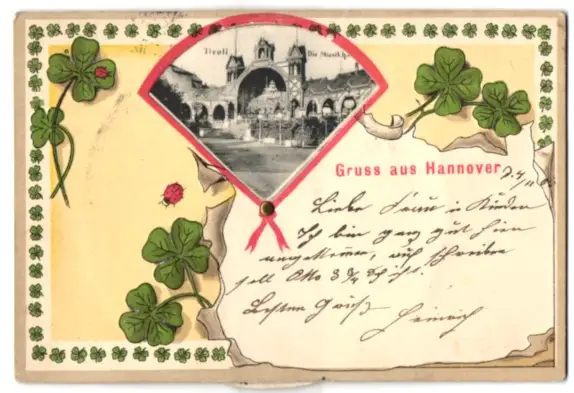 Tivoli Die Musikh
Gruss aus Hannover
Liebe Frau u Kinder
Ich bin ganz gut hier
angekommen, auch
soll Otto
Besten Gruß
Heinrich